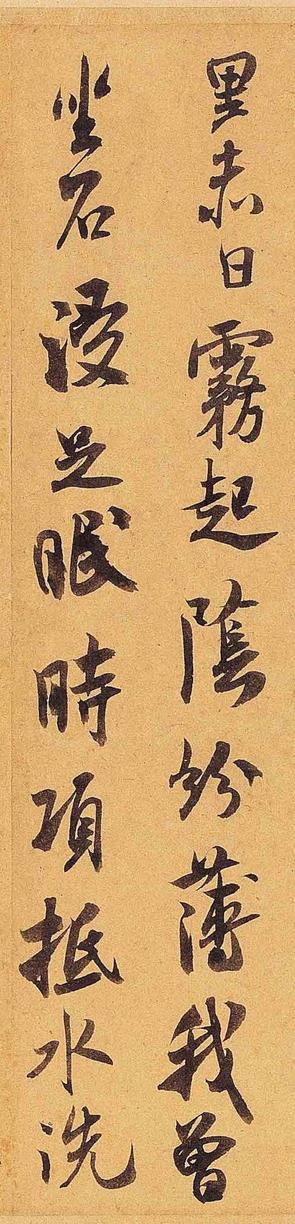 里赤日霧起陰紛薄我曾
坐石浸足眠時項抵水洗